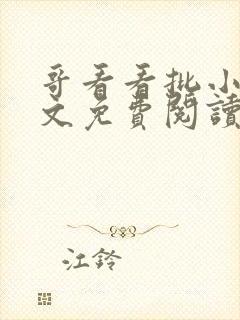 哥看看批小
文免費閱讀
江鈴